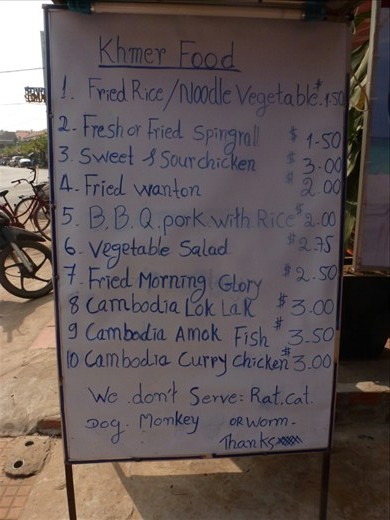 Khmer Food
1. Fried Rice/Noodle Vegetable $1.50
2. Fresh or Fried Spingroll $1.50
3. Sweet & Sour chicken $3.00
4. Fried wanton $2.00
5. B.B.Q. pork. with Rice $2.00
6. Vegetable Salad $2.75
7. Fried Morning Glory $2.50
8 Cambodia Lok Lak $3.00
9 Cambodia Amok Fish $3.50
10 Cambodia Curry Chicken $3.00
We .don't Serve: Rat. Cat.
Dog. Monkey OR Worm-
Thanks